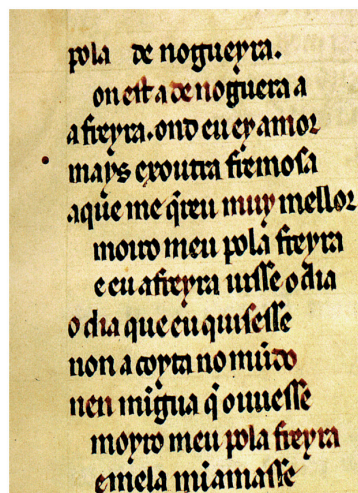 pola de nogueyra.
on est a de noguera a
a freyra. ond eu ey amor
mays exoutra fremosa
aque me q̄reu muy mellor
moiro meu pola freyra
e eu afreyra uisse o dia
o dia que eu quisesse
non a coyta no mūdo
nen mīgua q̄ ouuesse
moyro meu pola freyra
emela mī amasse